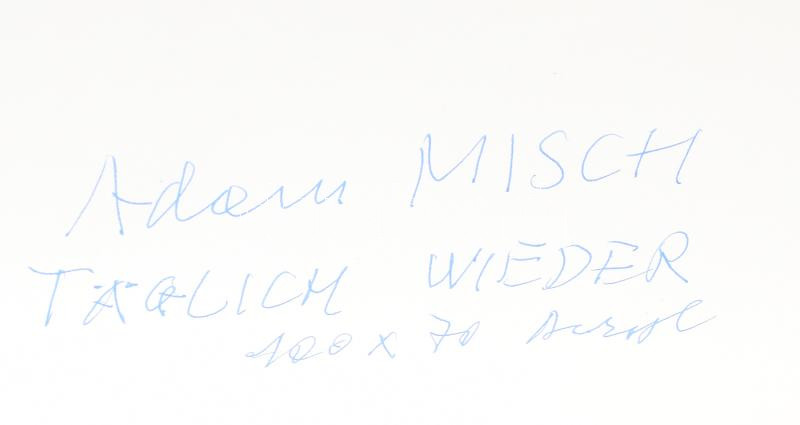 Adam MISCH
TÄGLICH WIEDER
100 x 70 Acryl